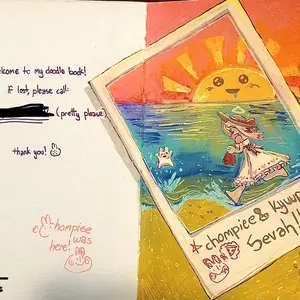 elcome to my doodle book!
if lost, please call:
(pretty please)
thank you!
chompiee
was
here!
chompiee & Kyuu
Sevah